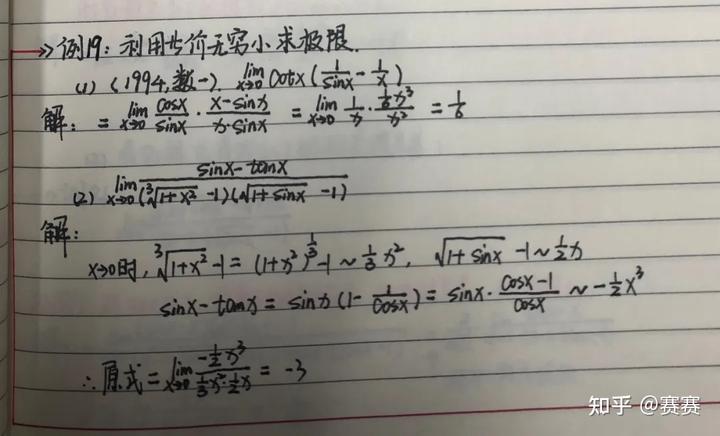 →» 例19:利用等价无穷小求极限.
(1) (1994,数一). lim_{x→0} cotx(1/sinx - 1/x)
解: = lim_{x→0} cosx/sinx · (x-sinx)/(x·sinx) = lim_{x→0} 1/x · (1/6 x³)/x² = 1/6
(2) lim_{x→0} (sinx-tanx)/((∛(1+x²) -1)(√(1+sinx) -1))
解:
x→0时, ∛(1+x²) -1 = (1+x²)^{1/3} -1 ~ 1/3 x², √(1+sinx) -1 ~ 1/2 x
sinx-tanx = sinx(1- 1/cosx) = sinx · (cosx-1)/cosx ~ -1/2 x³
∴ 原式 = lim_{x→0} (-1/2 x³)/(1/3 x² · 1/2 x) = -3
知乎 @赛赛